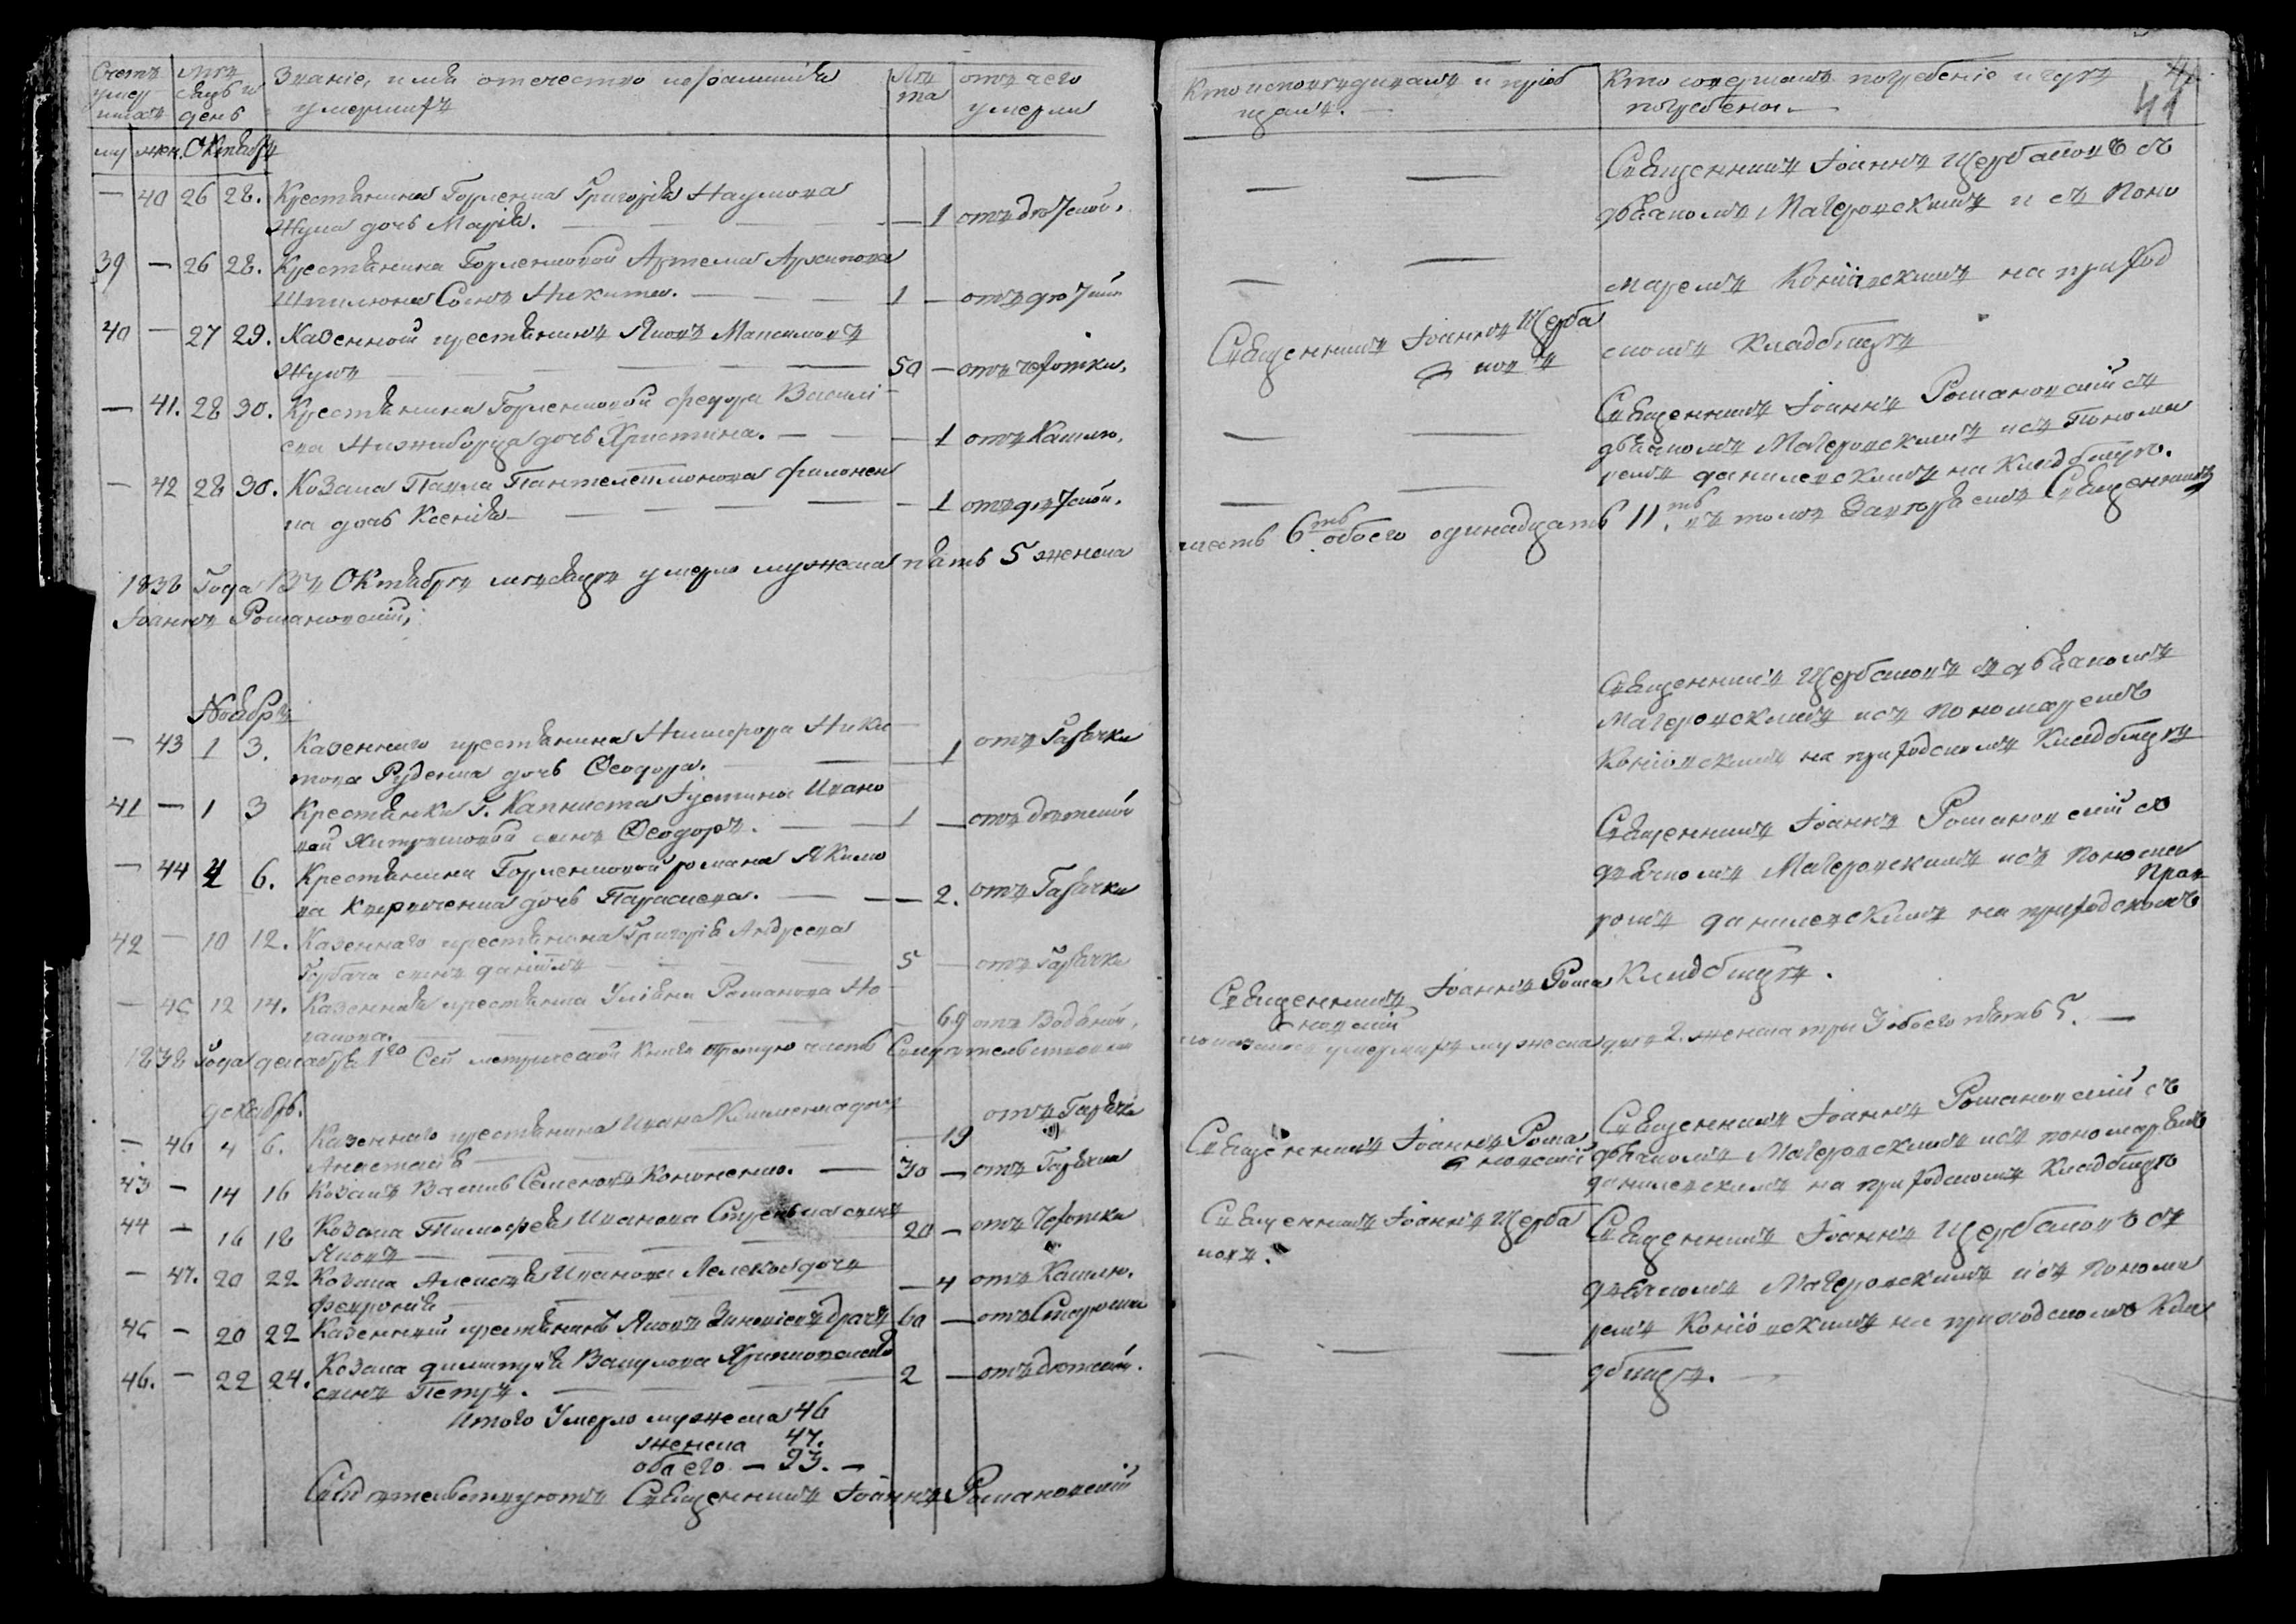 Счетъ умер шихъ
Мѣ сяцъ и день
Званіе, имя отечество и фамилія умершихъ
Лѣ та
отъ чего умерли
му жен. Октябрь
— 40 26 28. Крестьянина Горленка Григорія Наумова
Жука дочь Марія. — — 1 отъ
39 — 26 28. Крестьянина Горленковой Артема Архипова
сынъ Никита. — 1 — отъ
40 — 27 29. Казенной крестьянинъ Яковъ Максимовъ
Жукъ — 50 — отъ чехотки.
— 41. 28 30. Крестьянина Горленковой Федора Василі
ева дочь Христина. — — 1 отъ Кашлю.
— 42 28 30. Козака Павла Пантелеймонова Филонен
ка дочь Ксенія — — 1 отъ
1838 Года Въ Октябрѣ мѣсяцѣ умерло мужеска пять 5 женска
Іоаннъ Романовскій,
Ноябрь
— 43 1 3. Казеннаго крестьянина Никифора Ники
това Руденка дочь Ѳеодора. — — 1 отъ Гарячки
41 — 1 3 Крестьянки Г. Капниста Іустины Ивано
вой сынъ Ѳеодоръ. — 1 — отъ
— 44 4 6. Крестьянина Горленковой Романа Якимо
ва дочь Параскева. — — 2. отъ Гарячки
42 — 10 12. Казеннаго крестьянина Григорія Андреева
Горбача сынъ Даніилъ — 5 — отъ Гарячки
— 45 12 14. Казенная крестьянка Романова
— 69 отъ Водяной.
1838 Года декабря 1го Сей метрической Книги Третую часть Свидетельствовали
декабрь.
— 46 4 6. Казеннаго крестьянина Ивана Клименка дочь
Анастасія — — 19 отъ Гарячки
43 — 14 16 Козакъ Василь Семеновъ Кононенко. — 30 — отъ Гарячки
44 — 16 18 Козака Тимофея Иванова сынъ
Яковъ — 20 — отъ Чехотки
— 47. 20 22 Козака Алексѣя Иванова Лелеки дочь
Февронія — — 4 отъ Кашлю.
45 — 20 22 Казенной крестьянинъ Яковъ Зиновіевъ Драчъ 60 — отъ Старости
46. — 22 24. Козака Димитрія Вакулова
сынъ Петръ. — 2 — отъ
Итого Умерло мужеска 46
женска 47.
обоего — 93. —
Свидѣтельствуютъ Священникъ Іоаннъ Романовскій
Кто исповѣдывалъ и пріоб щалъ. —
Кто совершалъ погребеніе и гдѣ погребены —
41
— —
Священникъ Іоаннъ Щербаковъ съ
дьякомъ Магеровскимъ и съ Поно
— —
маремъ на приход
Священникъ Іоаннъ Щерба
ковъ
скомъ Кладбищѣ
Священникъ Іоаннъ Романовскій съ
дьякомъ Магеровскимъ и съ Понома
— —
ремъ Данилевскимъ на Кладбищѣ.
— —
шесть 6ть обоего одинадцать 11ть. въ томъ Священникъ
Священникъ Щербаковъ съ дьякомъ
Магеровскимъ и съ Пономаремъ
на приходскомъ Кладбищѣ
Священникъ Іоаннъ Романовскій съ
дьякомъ Магеровскимъ и съ Понома
ремъ Данилевскимъ на приходскомъ
Священникъ Іоаннъ Рома
новскій
Кладбищѣ.
умершихъ мужеска два 2. женска три 3 обоего пять 5. —
Священникъ Іоаннъ Рома
новскій
Священникъ Іоаннъ Романовскій съ
дьякомъ Магеровскимъ и съ пономаремъ
Данилевскимъ на приходскомъ Кладбищѣ
Священникъ Іоаннъ Щерба
ковъ.
Священникъ Іоаннъ Щербаковъ съ
дьякомъ Магеровскимъ и съ Понома
ремъ на приходскомъ Кла
— — —
дбищѣ. —